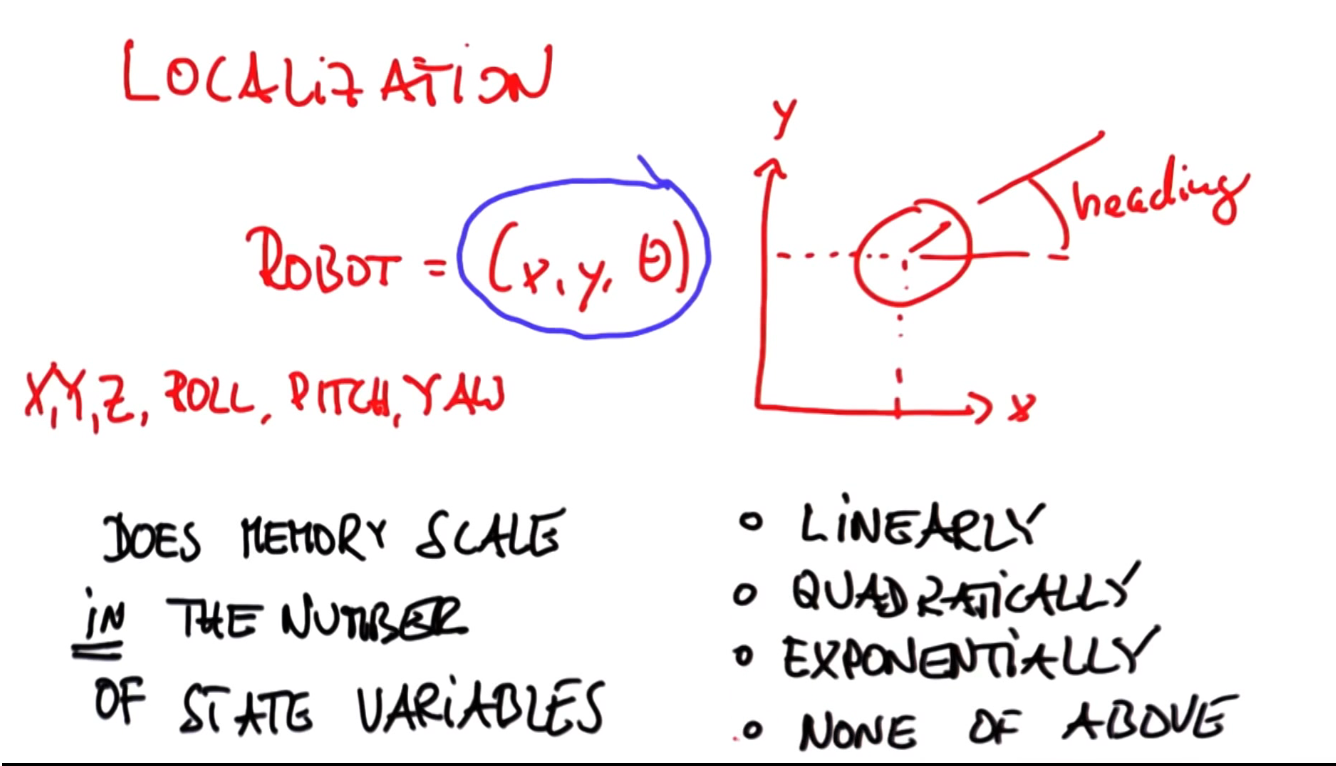 LOCALiZATiON
ROBOT = (x, y, θ)
X, Y, Z, ROLL, PITCH, YAW
Y
heading
x
DOES MEMORY SCALE
iN THE NUMBER
OF STATE VARiABLES
o LiNEARLY
o QUADRATiCALLY
o EXPONENTiALLY
o NONE OF ABOVE